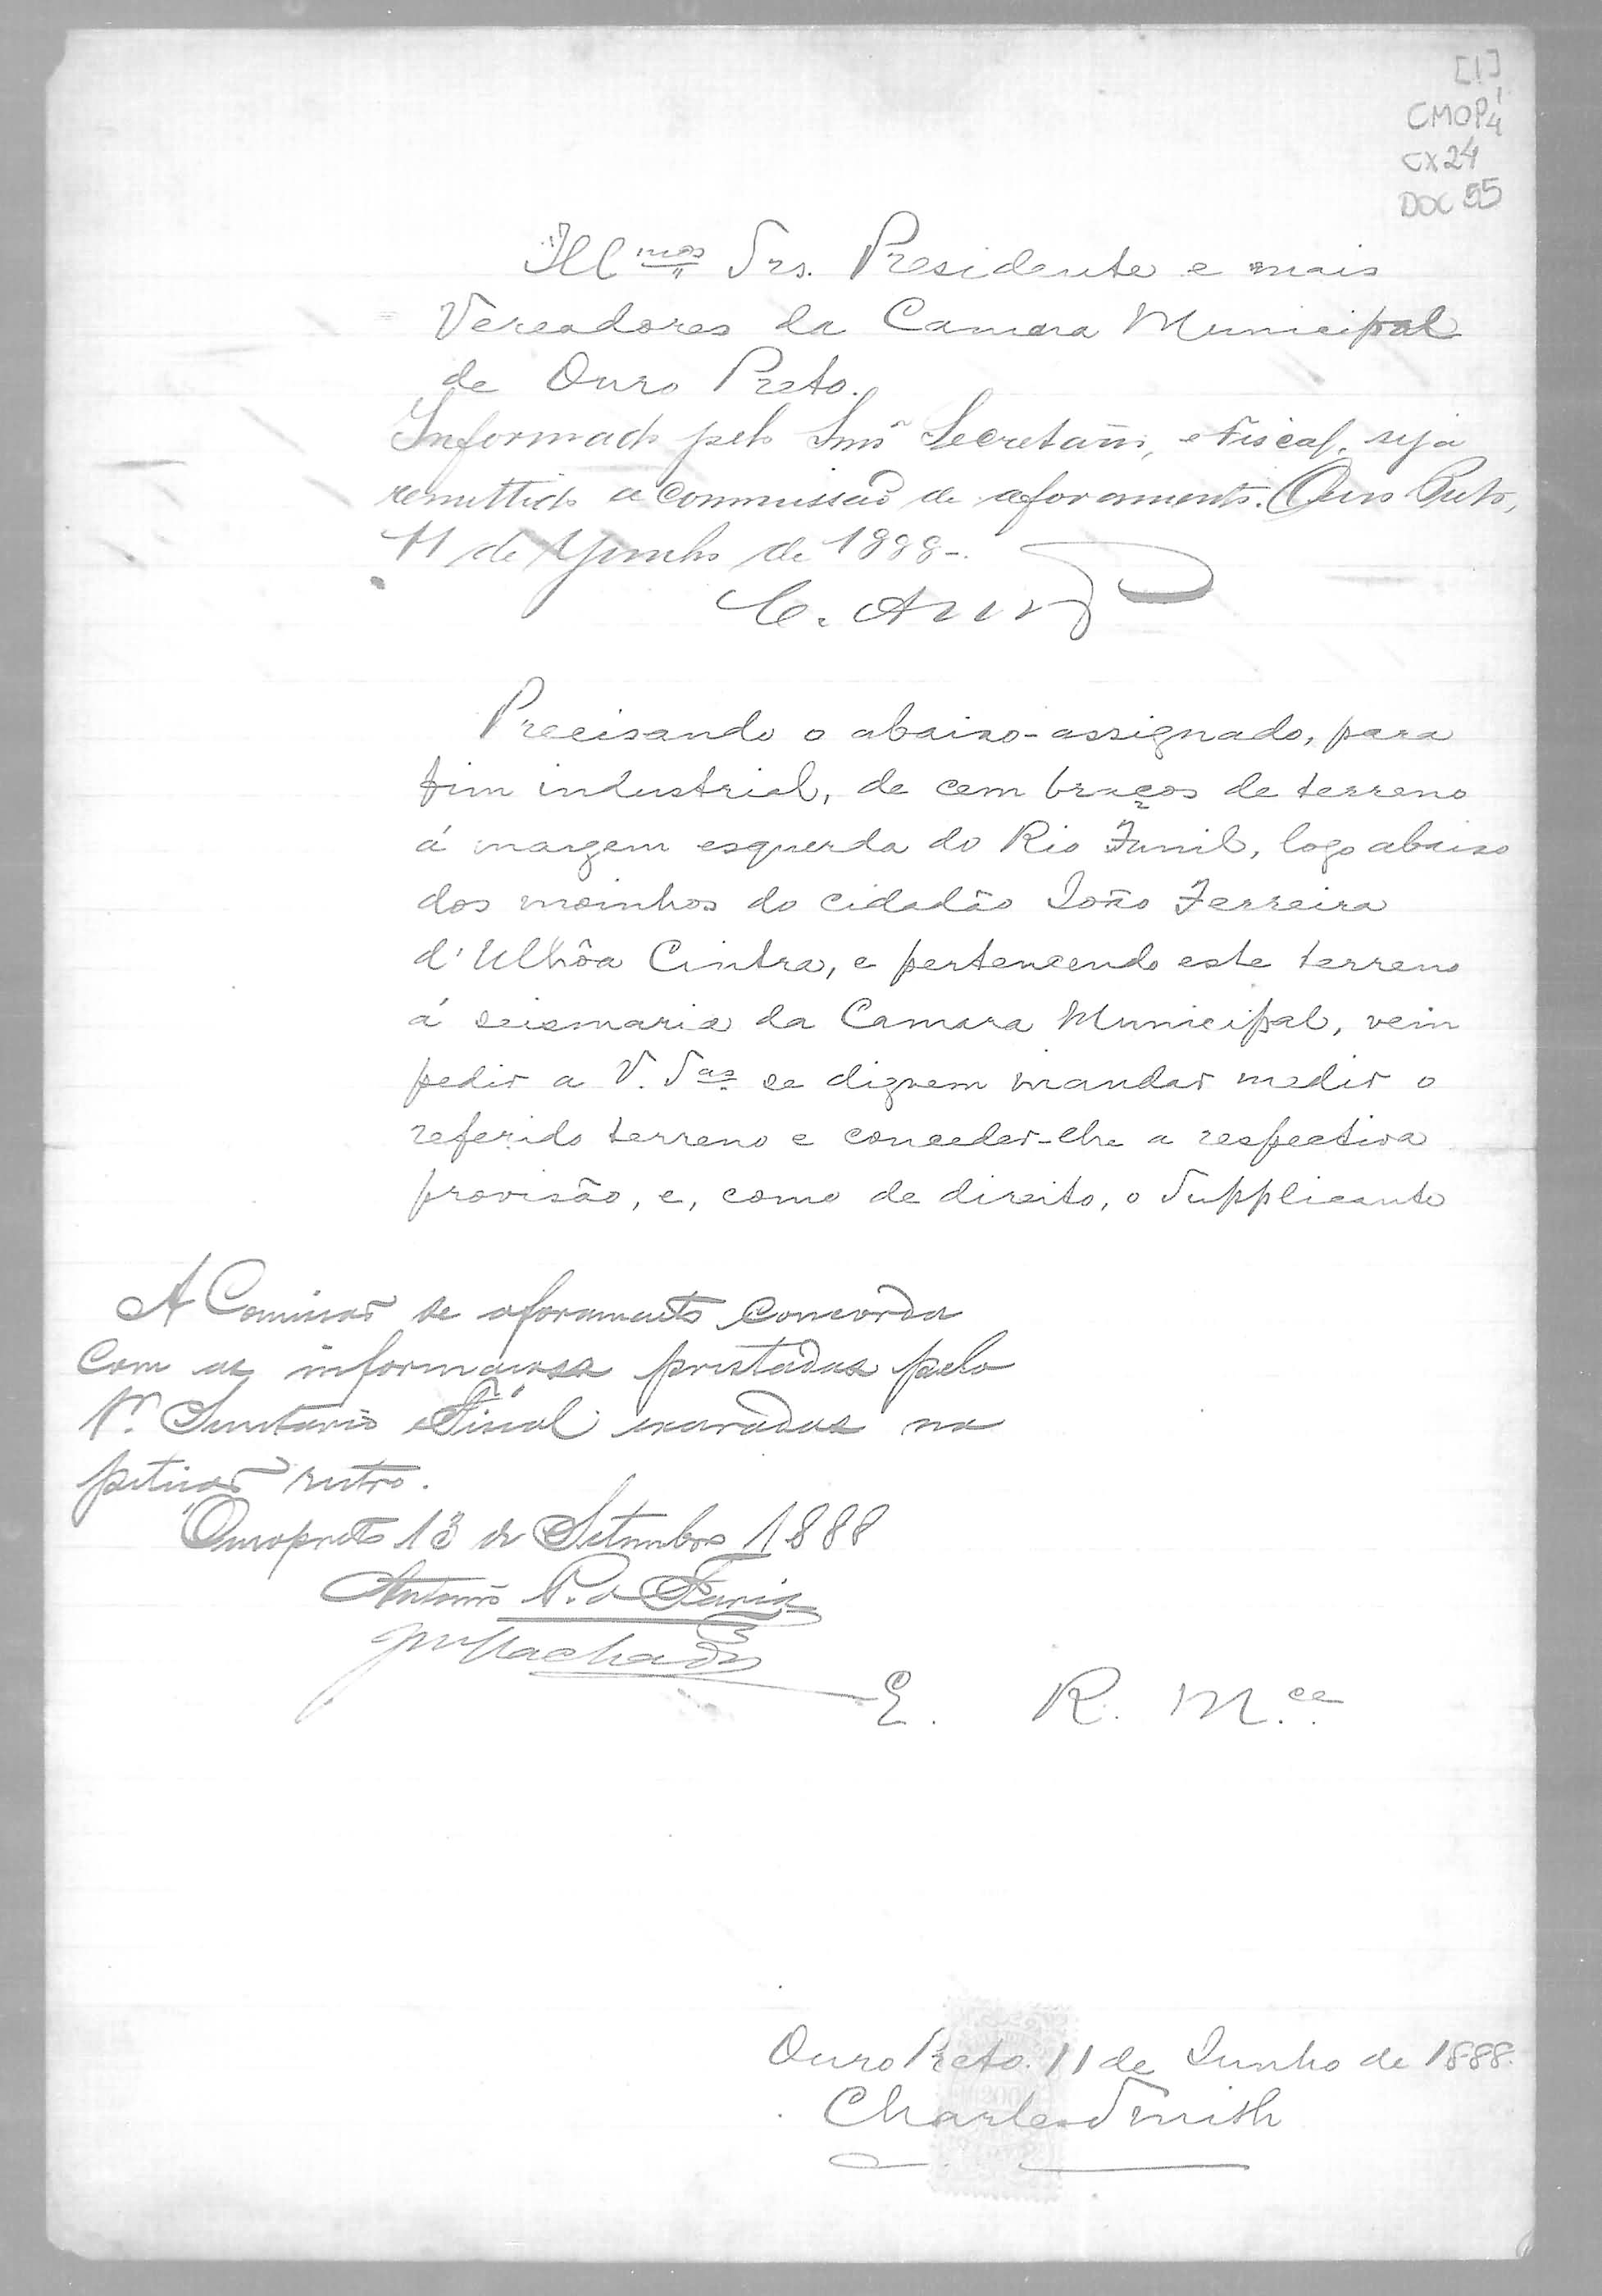 [1]
CMOP 1/4
CX 24
DOC 55
Ill.mos Srs. Presidente e mais
Vereadores da Camara Municipal
de Ouro Preto.
Informado pelo Snr Secretario, e Fiscal, seja
remettido a commissão de aforamento. Ouro Preto,
11 de Junho de 1888.
C.
Precisando o abaixo-assignado, para
fim industrial, de cem braços de terreno
á margem esquerda do Rio Funil, logo abaixo
dos moinhos do cidadão João Ferreira
d'Ulhôa Cintra, e pertencendo este terreno
á seismaria da Camara Municipal, vem
pedir a V. Sas. se dignem mandar medir o
referido terreno e conceder-lhe a respectiva
provisão, e, como de direito, o Supplicante
A Comissão de aforamento concorda
com as informações prestadas pelo
Sr. Secretario e Fiscal exaradas na
petição retro.
Ouropreto 13 de Setembro 1888
Antonio P. de Faria
Machado
E. R. M.ce
Ouro Preto. 11 de Junho de 1888.
Charles Smith
200